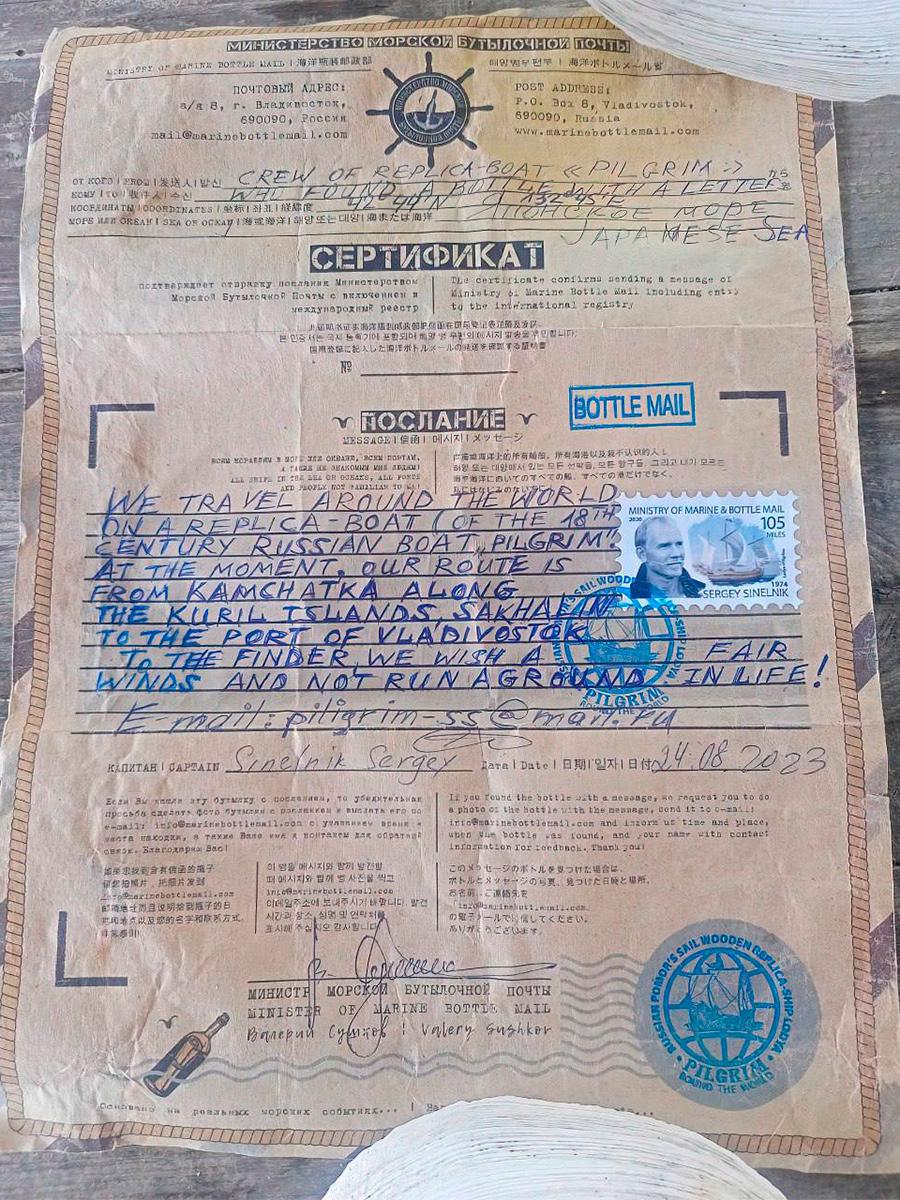 МИНИСТЕРСТВО МОРСКОЙ БУТЫЛОЧНОЙ ПОЧТЫ
MINISTRY OF MARINE BOTTLE MAIL | 海洋瓶邮政部
해양병우편부 | 海洋ボトルメール省
ПОЧТОВЫЙ АДРЕС:
а/я 8, г. Владивосток,
690090, Россия
mail@marinebottlemail.com
POST ADDRESS:
P.O. Box 8, Vladivostok,
690090, Russia
www.marinebottlemail.com
ОТ КОГО | FROM | 发送人 | 발신 CREW OF REPLICA-BOAT «PILGRIM»
КОМУ | TO | 收件人 | 수신 WHO FOUND A BOTTLE WITH A LETTER
КООРДИНАТЫ | COORDINATES | 坐标 | 좌표 | 経緯度 42°44'N 132°45'E
МОРЕ ИЛИ ОКЕАН | SEA OR OCEAN | 海或海洋 | 해양 또는 대양 | 海または海洋 ЯПОНСКОЕ МОРЕ
JAPANESE SEA
СЕРТИФИКАТ
подтверждает отправку послания Министерством
Морской Бутылочной Почты с включением в
международный реестр
The certificate confirms sending a message of
Ministry of Marine Bottle Mail including entry
to the international registry
№
BOTTLE MAIL
ПОСЛАНИЕ
MESSAGE | 信函 | 메시지 | メッセージ
ВСЕМ КОРАБЛЯМ В МОРЕ ИЛИ ОКЕАНЕ, ВСЕМ ПОРТАМ,
А ТАКЖЕ НЕ ЗНАКОМЫМ МНЕ ЛЮДЯМ!
ALL SHIPS IN THE SEA OR OCEANS, ALL PORTS
AND PEOPLE NOT FAMILIAR TO ME!
WE TRAVEL AROUND THE WORLD
ON A REPLICA-BOAT (OF THE 18TH
CENTURY RUSSIAN BOAT "PILGRIM".
AT THE MOMENT, OUR ROUTE IS
FROM KAMCHATKA ALONG
THE KURIL ISLANDS, SAKHALIN
TO THE PORT OF VLADIVOSTOK
TO THE FINDER, WE WISH A FAIR
WINDS AND NOT RUN AGROUND IN LIFE!
E-mail: piligrim-ss@mail.ru
MINISTRY OF MARINE & BOTTLE MAIL
2020
105
MILES
1974
SERGEY SINELNIK
PILGRIM
ROUND THE WORLD
КАПИТАН | CAPTAIN Sinelnik Sergey Дата | Date | 日期 | 일자 | 日付 24.08.2023
Если Вы нашли эту бутылку с посланием, то убедительная
просьба сделать фото бутылки с посланием и выслать его по
e-mail: info@marinebottlemail.com с указанием времени и
места находки, а также Ваше имя и контакты для обратной
связи. Благодарим Вас!
If you found the bottle with a message, we request you to do
a photo of the bottle with the message, send it to e-mail:
info@marinebottlemail.com and inform us time and place,
when the bottle was found, and your name with contact
information for feedback. Thank you!
如果您找到含有信函的瓶子
请您拍照片, 把照片发到
info@marinebottlemail.com
이 병을 메시지와 함께 발견할
때 메시지와 함께 병 사진을 찍고
info@marinebottlemail.com
이메일주소에 보내주시기 바랍니다. 발견
시간과 장소, 성명 및 연락처를
표시해 주십시오 감사합니다
このメッセージのボトルを見つけた場合は、
ボトルとメッセージの写真、見つけた日時と場所、
お名前、ご連絡先を
info@marinebottlemail.com
の電子メールで送信してください。
ありがとうございます。
МИНИСТР МОРСКОЙ БУТЫЛОЧНОЙ ПОЧТЫ
MINISTER OF MARINE BOTTLE MAIL
Валерий Сушков | Valery Sushkov
RUSSIAN POMOR'S SAIL WOODEN REPLICA-SHIP LODYA
PILGRIM
ROUND THE WORLD
Основано на реальных морских событиях...